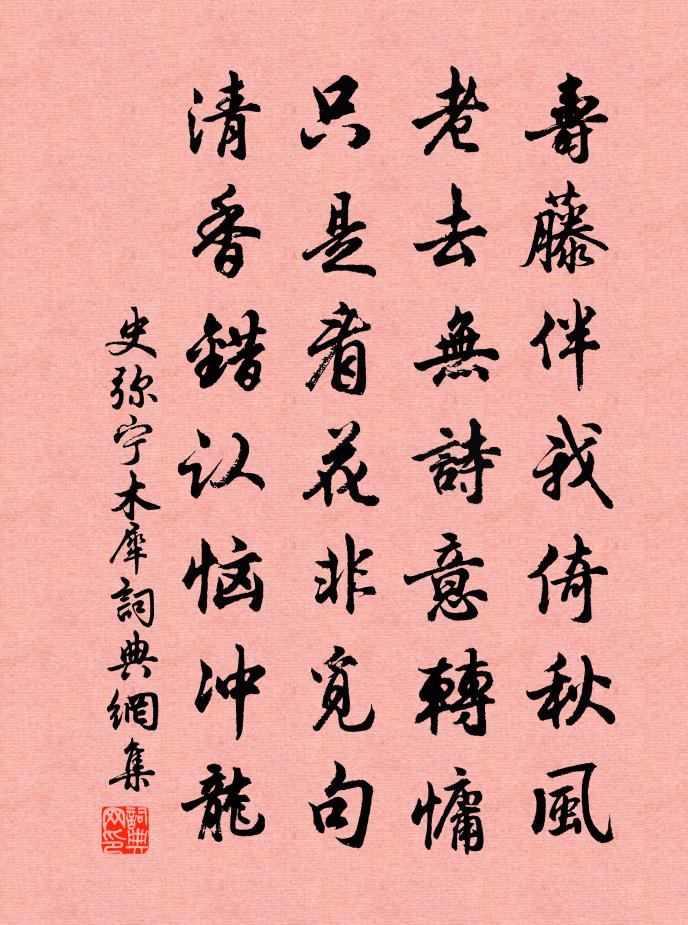 壽藤伴我倚秋風
老去無詩意轉慵
只是看花非覓句
清香錯认恼冲龍
史弥宁木犀詞典網集
詞典网印